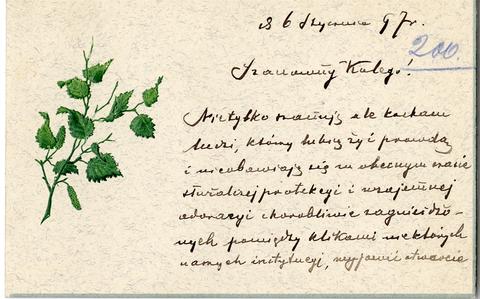 d. 6 Stycznia 97 r.
200.
Szanowny Kolego!
Nietylko szanuję ale kocham
ludzi, którzy lubią żyć prawdą
i nieobawiają się w obecnym czasie
protekcyi i wzajemnej
adoracyi chorobliwie zagnieżdżo-
nych pomiędzy klikami niektórych
naszych instytucyi, wyjawić otwarcie